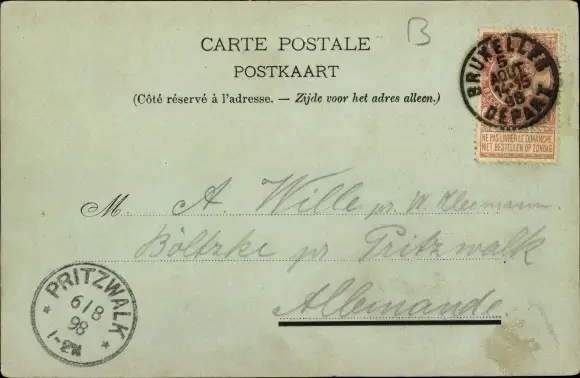 B
CARTE POSTALE
POSTKAART
(Côté réservé à l'adresse. — Zijde voor het adres alleen.)
BRUXELLES
5
AOUT
98
DEPART
NE PAS LIVRER LE DIMANCHE
NIET BESTELLEN OP ZONDAG
M. A. Wille pr. W. Kleemann.
Böltzke pr Pritzwalk
Allemande.
PRITZWALK
6/8
98
1-2N